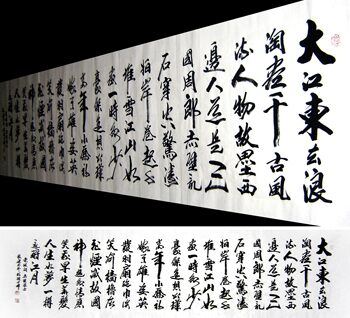 大江東去浪
淘盡千古風
流人物故壘西
邊人道是三
國周郎赤壁亂
石穿空驚濤
拍岸卷起千
堆雪江山如
畫一時多少
豪傑遙想公瑾
當年小喬初
嫁了雄姿英
發羽扇綸巾談
笑間檣櫓灰
飛煙滅故國
神遊多情應
笑我早生華髮
人生如夢一尊
還酹江月
大江東去浪
淘盡千古風
流人物故壘西
邊人道是三
國周郎赤壁亂
石穿空驚濤
拍岸卷起千
堆雪江山如
畫一時多少
豪傑遙想公瑾
當年小喬初
嫁了雄姿英
發羽扇綸巾談
笑間檣櫓灰
飛煙滅故國
神遊多情應
笑我早生華髮
人生如夢一尊
還酹江月